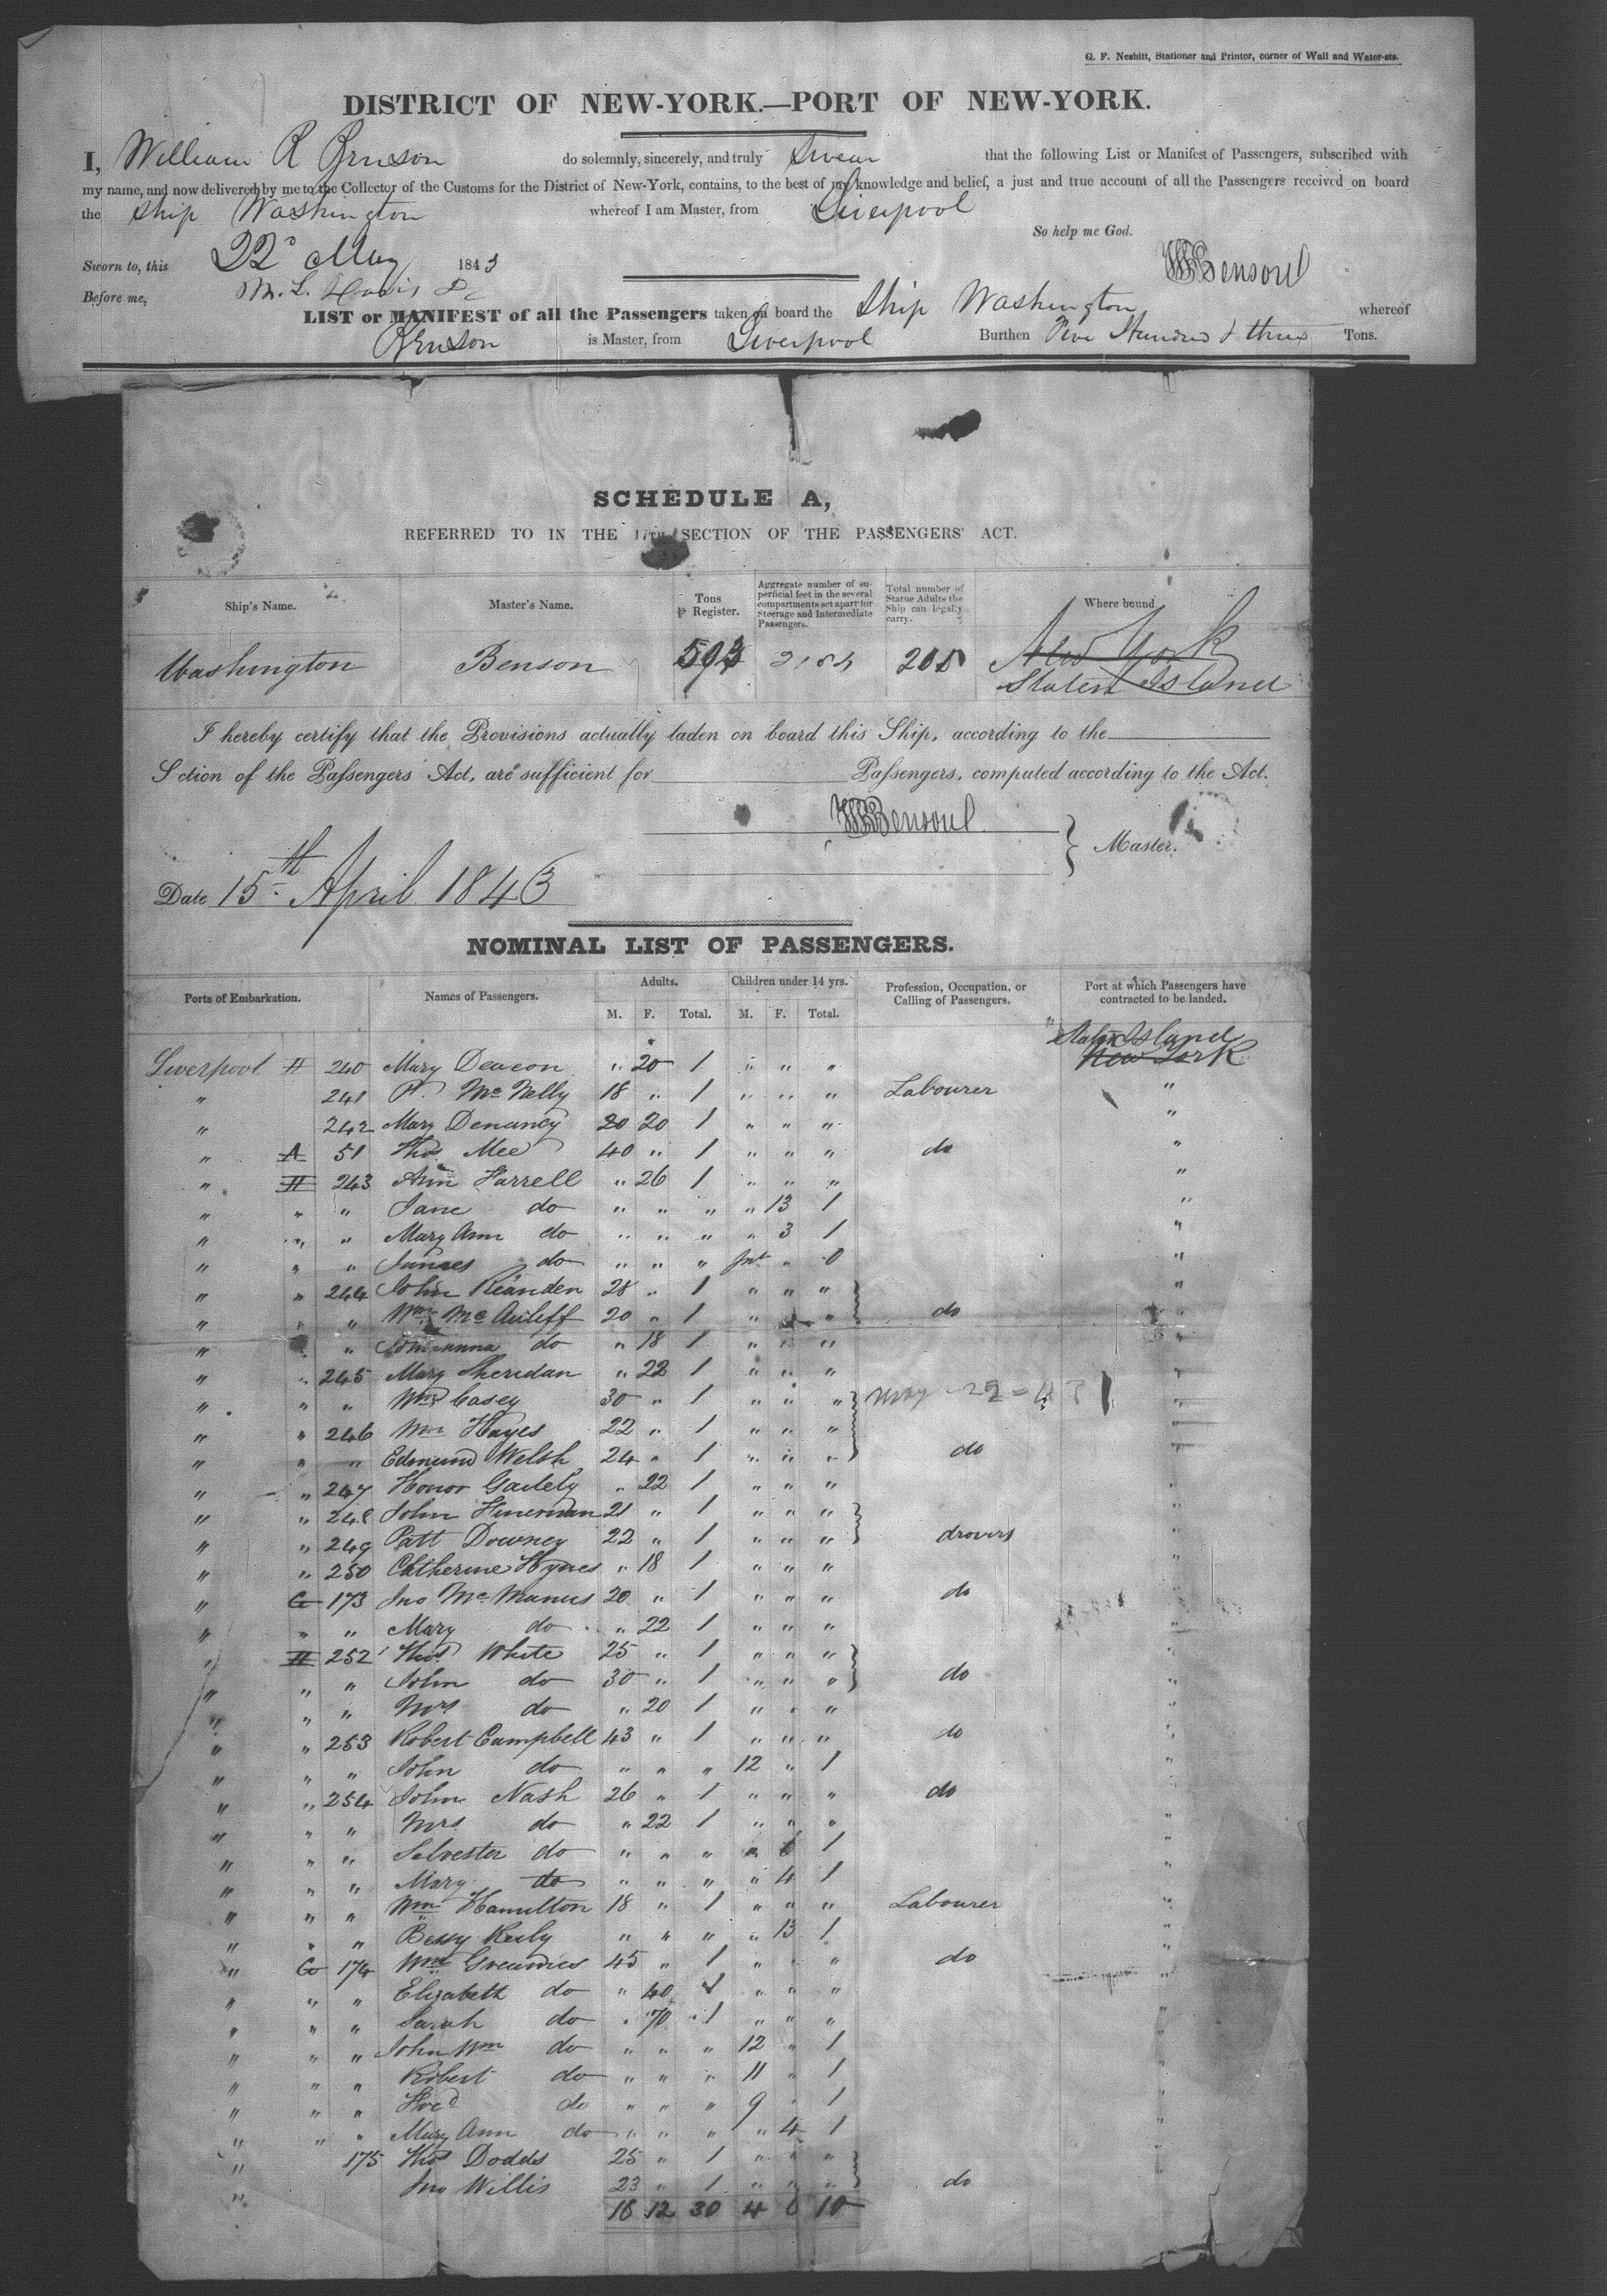 G. F. Nesbitt, Stationer and Printer, corner of Wall and Water-sts.
DISTRICT OF NEW-YORK.—PORT OF NEW-YORK.
I, William R Benson do solemnly, sincerely, and truly Swear that the following List or Manifest of Passengers, subscribed with
my name, and now delivered by me to the Collector of the Customs for the District of New-York, contains, to the best of my knowledge and belief, a just and true account of all the Passengers received on board
the Ship Washington whereof I am Master, from Liverpool
So help me God.
Sworn to, this 22d May 1843
Before me, M. L. Davis
LIST or MANIFEST of all the Passengers taken on board the Ship Washington whereof
Benson is Master, from Liverpool Burthen Five Hundred & three Tons.
SCHEDULE A,
REFERRED TO IN THE 17TH SECTION OF THE PASSENGERS' ACT.
Ship's Name. Master's Name. Tons ⅌ Register. Aggregate number of superficial feet in the several compartments set apart for Steerage and Intermediate Passengers. Total number of Statue Adults the Ship can legally carry. Where bound
Washington Benson 503 2184 208 New York
Staten Island
I hereby certify that the Provisions actually laden on board this Ship, according to the
Section of the Passengers' Act, are sufficient for Passengers, computed according to the Act.
Master.
Date 15th April 1843
NOMINAL LIST OF PASSENGERS.
Ports of Embarkation. Names of Passengers. Adults. Children under 14 yrs. Profession, Occupation, or Calling of Passengers. Port at which Passengers have contracted to be landed.
M. F. Total. M. F. Total.
Staten Island
Liverpool H 240 Mary Deacon " 20 1 " " " New York
" 241 P. McNelly 18 " 1 " " " Labourer "
" 242 Mary Denancy 20 20 1 " " " "
" A 51 Thos Mee 40 " 1 " " " do "
" H 243 Ann Farrell " 26 1 " " " "
" " " Jane do " " " " 13 1 "
" " " Mary Ann do " " " " 3 1 "
" " " James do " " " Inf " 0 "
" " 244 John Rearden 28 " 1 " " " "
" " " Wm McAuliff 20 " 1 " " " do "
" " " Johanna do " 18 1 " " "
" " 245 Mary Sheridan " 22 1 " " "
" " " Wm Casey 30 " 1 " " " May 22 = 43
" " 246 Wm Hayes 22 " 1 " " "
" " " Edmund Welsh 24 " 1 " " " do
" " 247 Honor " 22 1 " " "
" " 248 John 21 " 1 " " "
" " 249 Patt Downey 22 " 1 " " " drovers
" " 250 Catherine Hynes " 18 1 " " "
" G 173 Jno McManus 20 " 1 " " " do
" " " Mary do " 22 1 " " "
" H 252 Thos White 25 " 1 " " "
" " " John do 30 " 1 " " " do
" " " Mrs do " 20 1 " " "
" " 253 Robert Campbell 43 " 1 " " " do
" " " John do " " " 12 " 1
" " 254 John Nash 26 " 1 " " " do
" " " Mrs do " 22 1 " " "
" " " Selvester do " " " " 6 1
" " " Mary do " " " " 4 1
" " " Wm Hamilton 18 " 1 " " " Labourer
" " " Bessy Reily " " " " 13 1
" G 174 Wm 45 " 1 " " " do
" " " Elizabeth do " 40 1 " " "
" " " Sarah do " 70 1 " " "
" " " John Wm do " " " 12 " 1
" " " Robert do " " " 11 " 1
" " " Fred do " " " 9 " 1
" " " Mary Ann do " " " " 4 1
" 175 Thos Dodds 25 " 1 " " "
" Jno Willis 23 " 1 " " " do
18 12 30 4 6 10